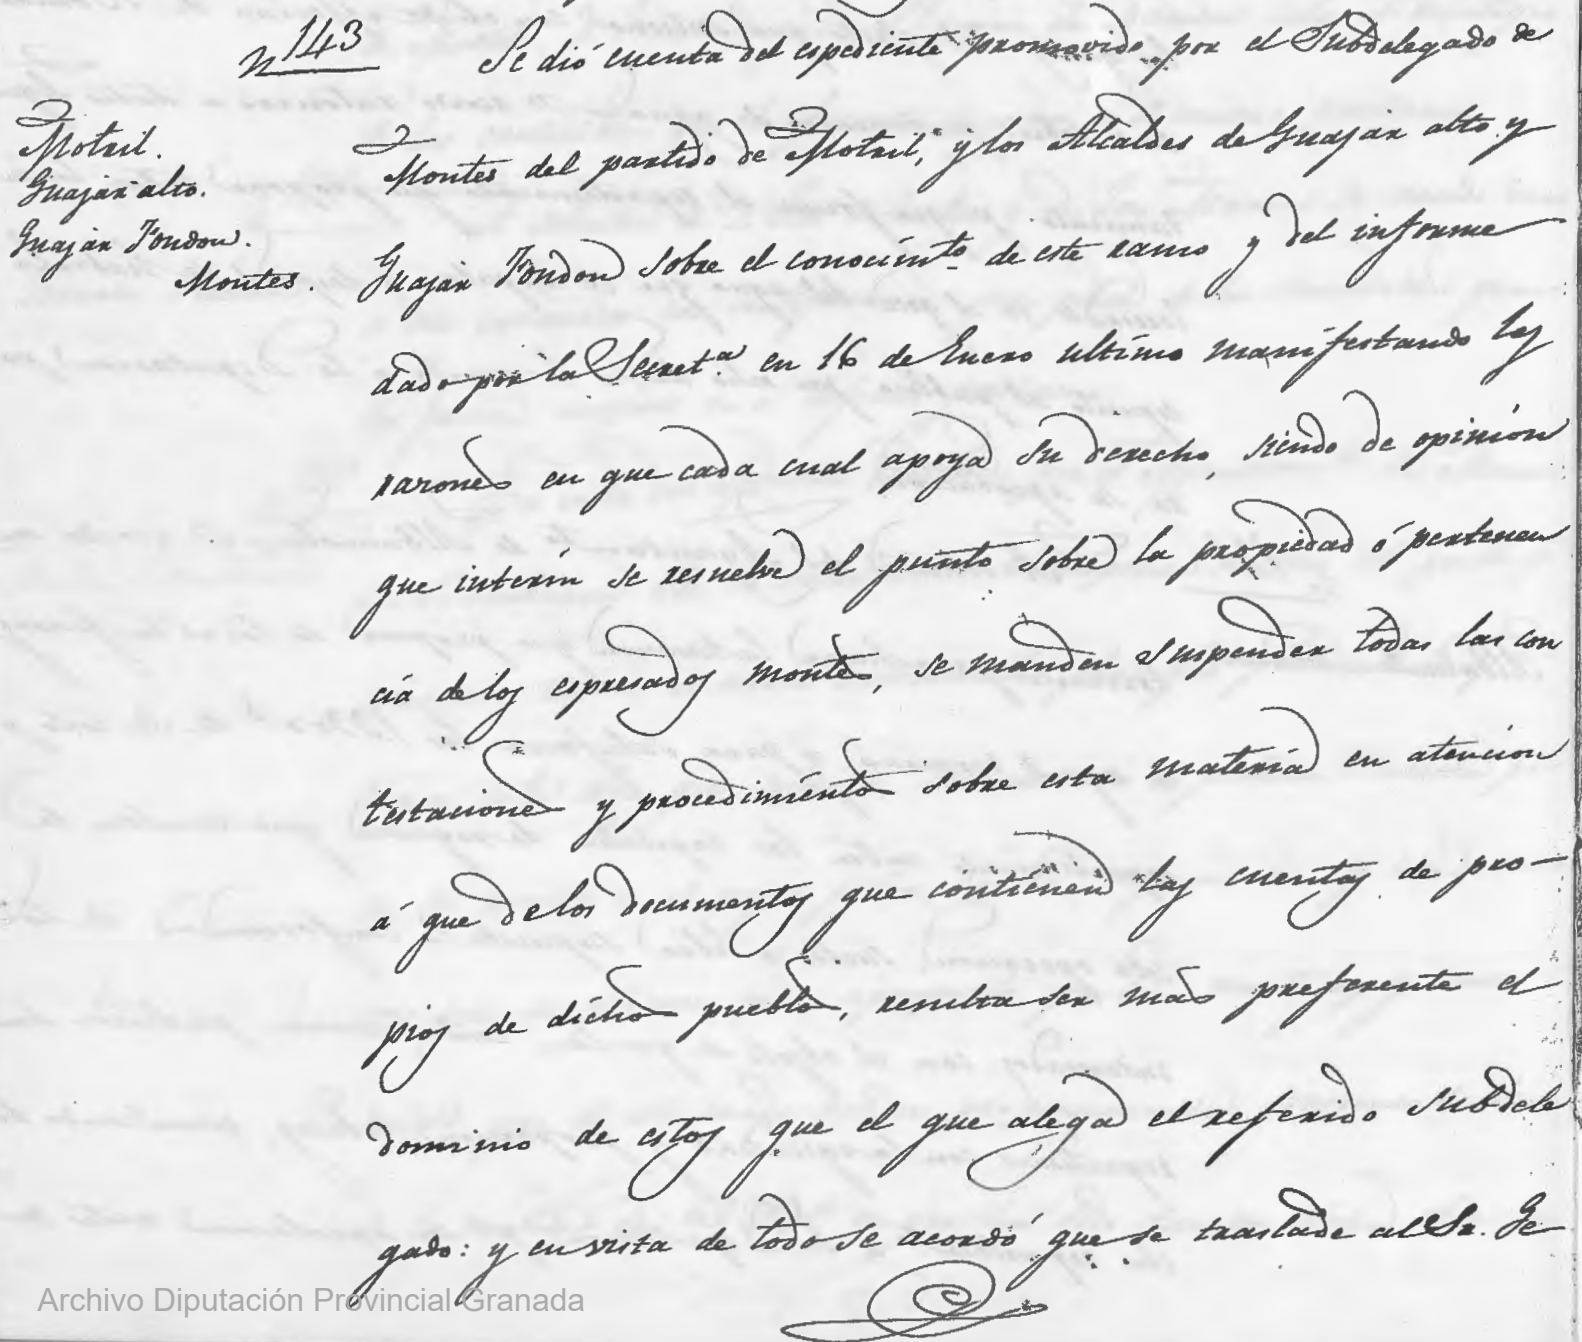 n 143
Motril.
Guajar alto.
Guajar Fondon.
Montes.
Se dió cuenta del espediente promovido por el Subdelegado de
Montes del partido de Motril, y los Alcaldes de Guajar alto y
Guajar Fondon sobre el conocimto. de este ramo y del informe
dado por la Secreta. en 16 de Enero ultimo manifestando las
razones en que cada cual apoya su derecho, siendo de opinion
que interin se resuelve el punto sobre la propiedad ó pertenen
cia de los espresados montes, se manden suspender todas las con
testaciones y procedimientos sobre esta materia en atencion
á que de los documentos que contienen las cuentas de pro-
pios de dichos pueblos, resulta ser mas preferente el
dominio de estos que el que alega el referido Subdele
gado: y en vista de todo se acordó que se traslade al Sr. Ge
Archivo Diputación Provincial Granada